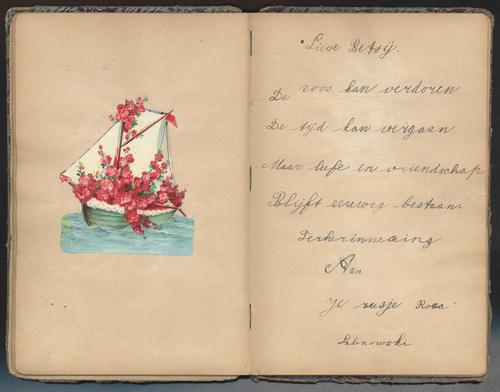 Lieve Betsij.
De roos kan verdoren
De tijd kan vergaan
Maar liefe en vriendschap
Blijft eeuwig bestaan.
Terherinnering
Aan
Je zusje Roza